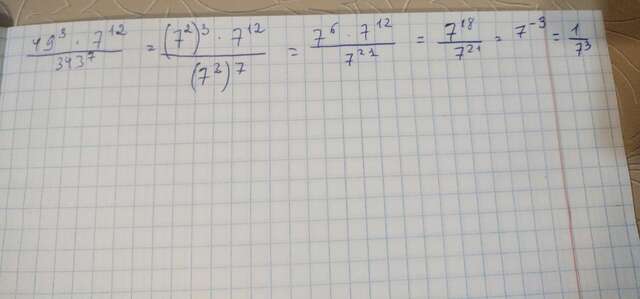 49³ · 7¹² / 343⁷ = (7²)³ · 7¹² / (7³)⁷ = 7⁶ · 7¹² / 7²¹ = 7¹⁸ / 7²¹ = 7⁻³ = 1 / 7³